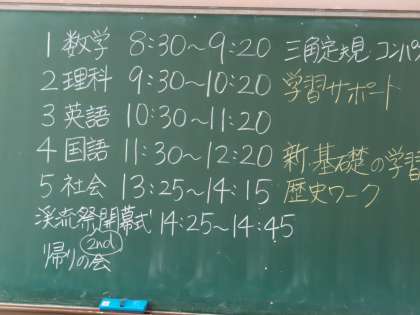 1 数学 8:30〜9:20 三角定規 コンパ
2 理科 9:30〜10:20 学習サポート
3 英語 10:30〜11:20
4 国語 11:30〜12:20 新・基礎の学習
5 社会 13:25〜14:15 歴史ワーク
渓流祭開幕式 14:25〜14:45
2nd
帰りの会